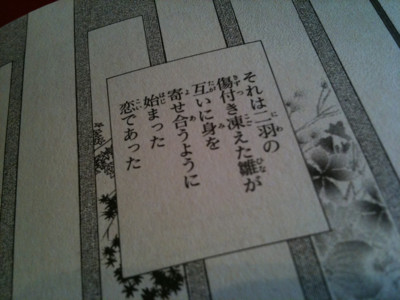 それは二羽の
傷付き凍えた雛が
互いに身を
寄せ合うように
始まった
恋であった